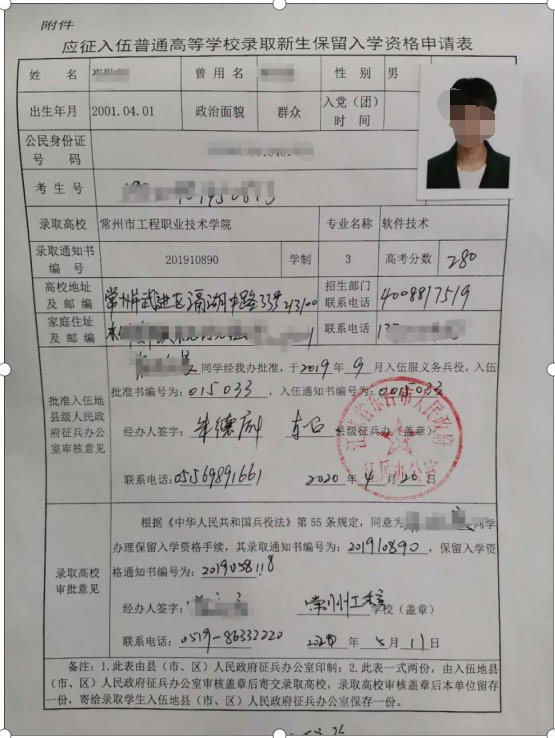 附件
应征入伍普通高等学校录取新生保留入学资格申请表
姓 名 曾用名 性 别 男
出生年月 2001.04.01 政治面貌 群众 入党（团）时 间
公民身份证号 码
考生号
录取高校 常州市工程职业技术学院 专业名称 软件技术
录取通知书编 号 201910890 学制 3 高考分数 280
高校地址及邮编 常州市武进区滆湖中路33号213100 招生部门联系电话 4008817519
家庭住址及邮编 联系电话
批准入伍地县级人民政府征兵办公室审核意见
同学经我办批准，于2019年9月入伍服义务兵役，入伍
批准书编号为：015033，入伍通知书编号为：0015033
经办人签字： 东台 县级征兵办（盖章）
联系电话：05169891661 2020年4月20日
江苏省东台市人民政府
征兵办公室
录取高校审批意见
根据《中华人民共和国兵役法》第55条规定，同意为 同学
办理保留入学资格手续，其录取通知书编号为：201910890，保留入学资
格通知书编号为：2019058118
经办人签字： 常州工程 学校（盖章）
联系电话：0519-86332220 2020年5月11日
备注：1.此表由县（市、区）人民政府征兵办公室印制；2.此表一式两份，由入伍地县
（市、区）人民政府征兵办公室审核盖章后寄交录取高校，录取高校审核盖章后本单位留存
一份，寄给录取学生入伍地县（市、区）人民政府征兵办公室保存一份。